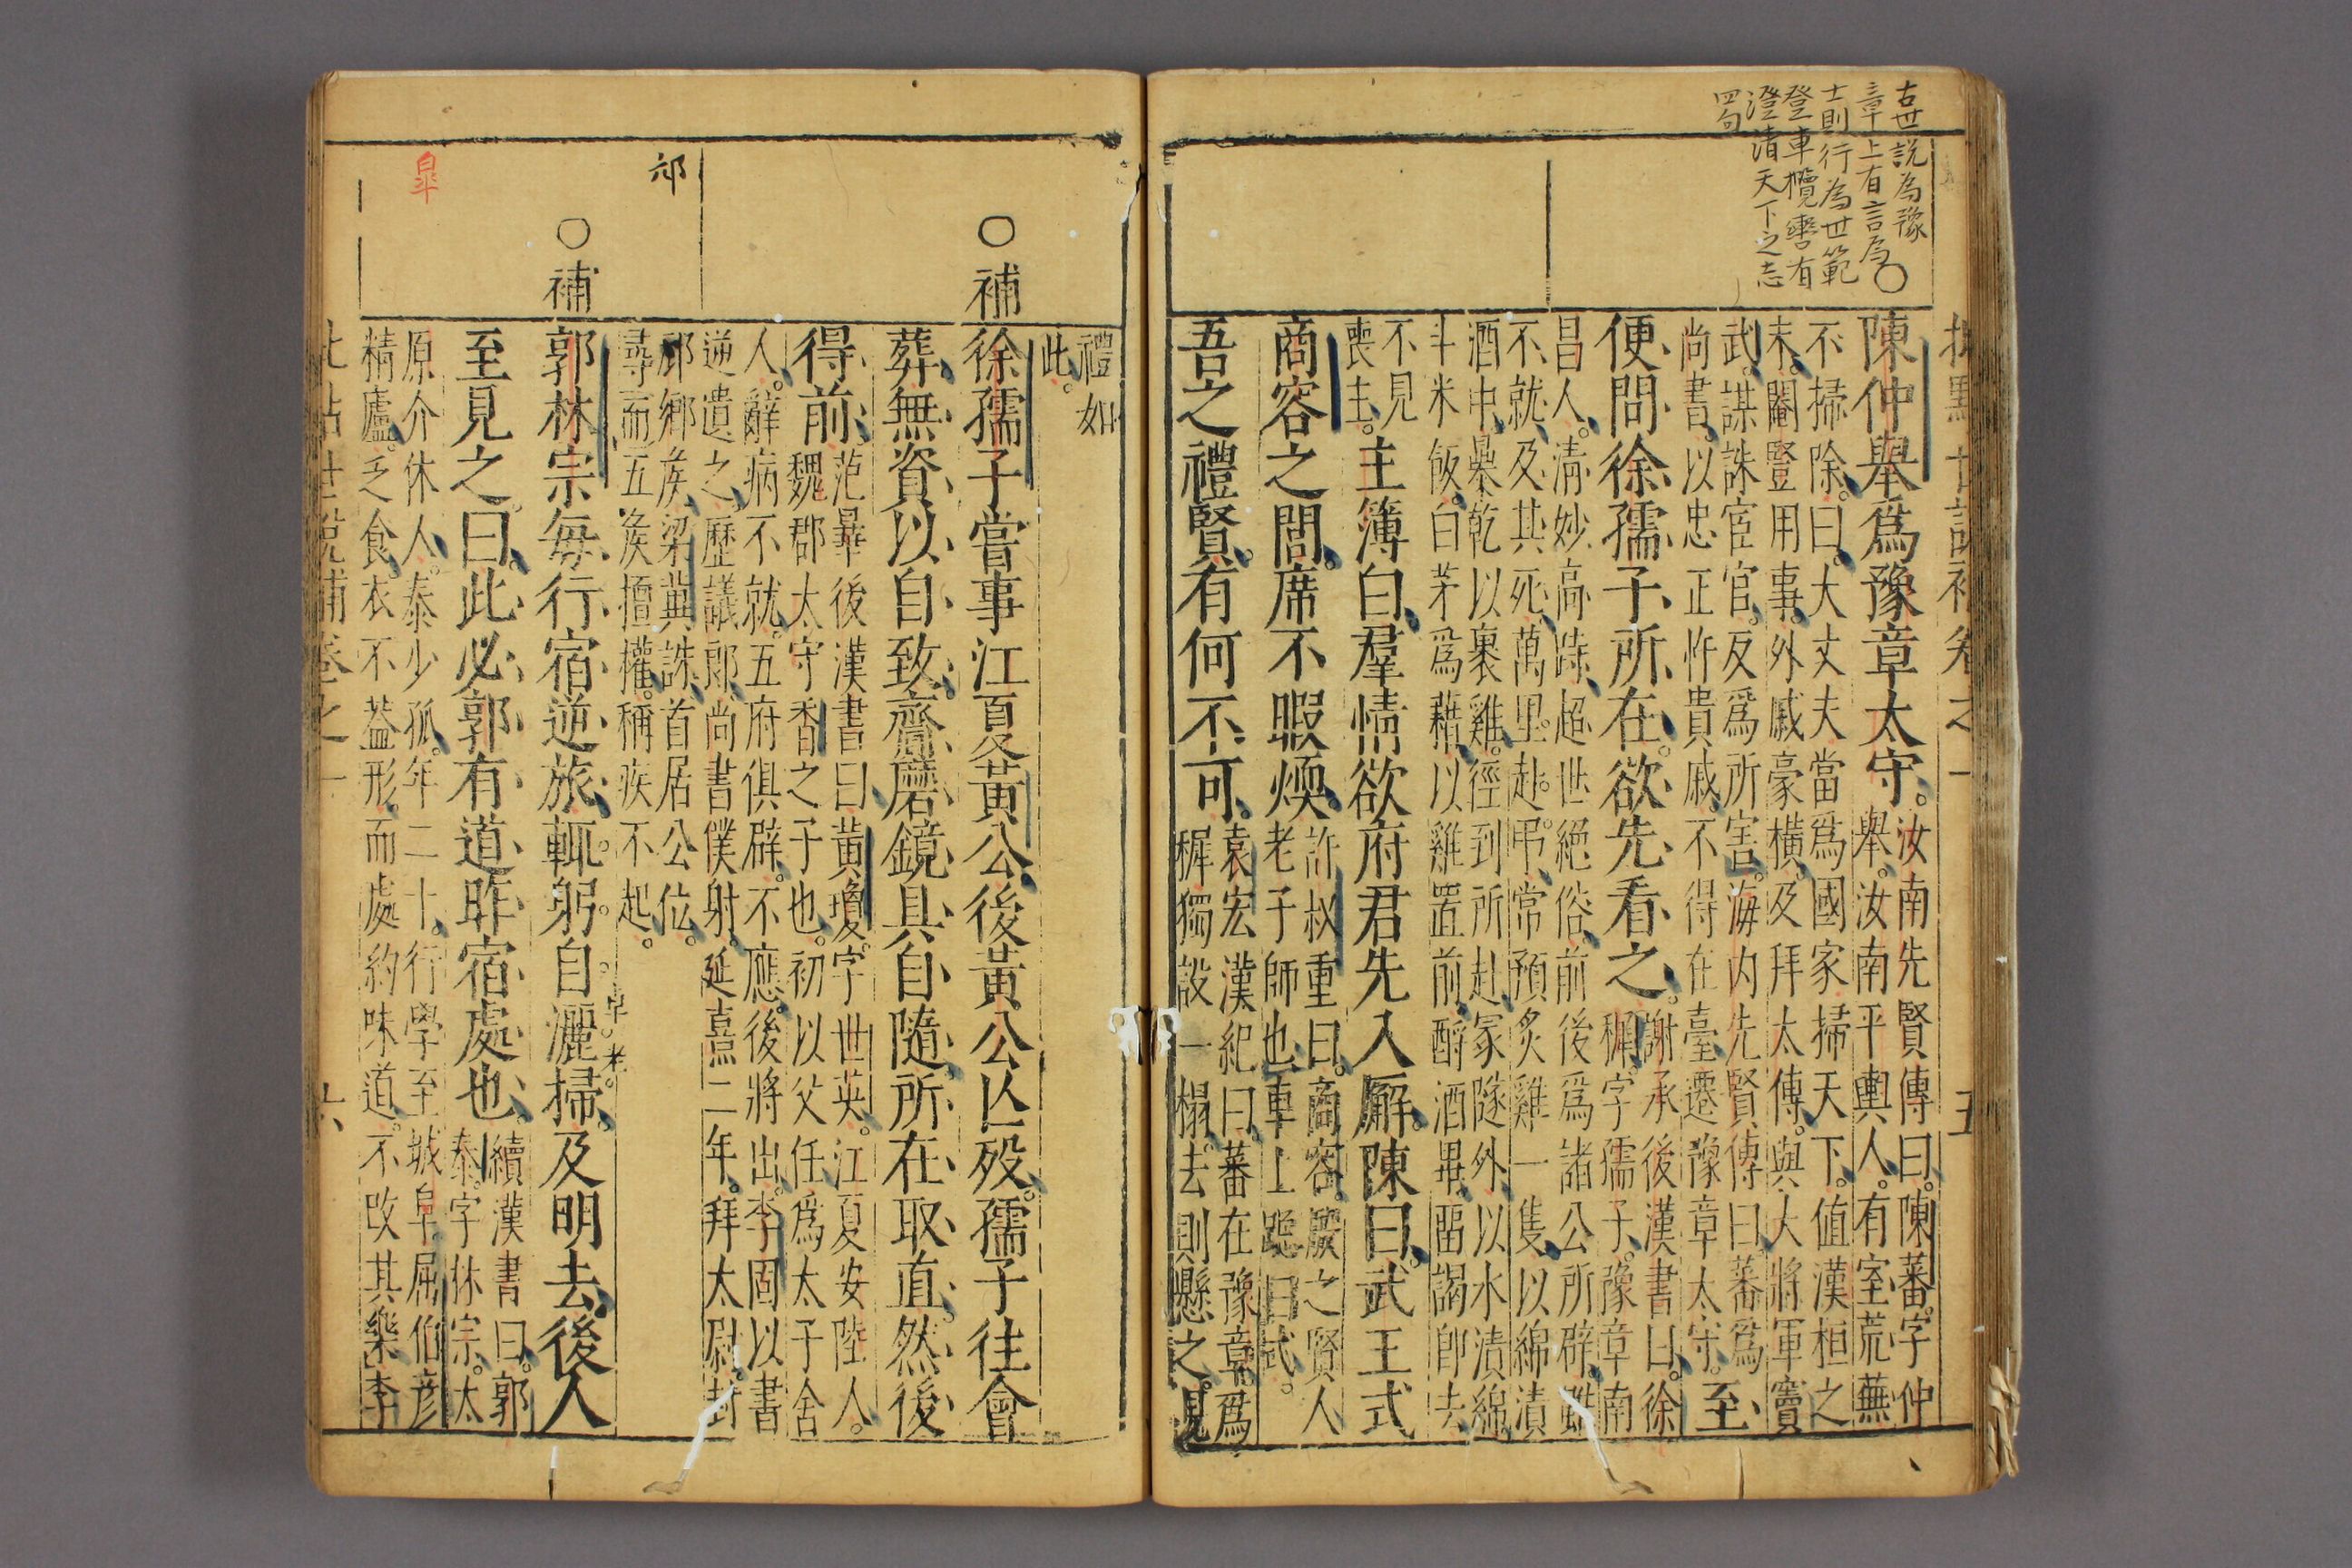 古世說為豫
章上有言為
士則行為世範
登車攬轡有
澄清天下之志
四句
批點世說補卷之一
五
○
陳仲舉爲豫章太守。
汝南先賢傳曰。陳蕃。字仲
舉。汝南平輿人。有室荒蕪
不掃除。曰。大丈夫當爲國家掃天下。值漢桓之
末。閹豎用事。外戚豪橫。及拜太傅。與大將軍竇
武。謀誅宦官。反爲所害。海內先賢傳曰。蕃爲
尚書。以忠正忤貴戚。不得在臺。遷豫章太守。
至
便問徐孺子所在。欲先看之。
謝承後漢書曰。徐
穉。字孺子。豫章南
昌人。清妙高跱。超世絕俗。前後爲諸公所辟。雖
不就。及其死。萬里赴弔。常預炙雞一隻。以綿漬
酒中。暴乾以裹雞。徑到所赴冢隧外。以水漬綿。
斗米飯。白茅爲藉。以雞置前。酹酒畢。留謁卽去。
不見
喪主。
主簿白。羣情欲府君先入廨。陳曰。武王式
商容之閭。席不暇煖。
許叔重曰。商容。殷之賢人。
老子師也。車上跽曰式。
吾之禮賢。有何不可。
袁宏漢紀曰。蕃在豫章。爲
穉獨設一榻。去則懸之。見
禮如
此。
○補
徐孺子嘗事江夏黃公。後黃公亾歿。孺子往會
葬。無資以自致。齎磨鏡具自隨。所在取直。然後
得前。
范曄後漢書曰。黃瓊。字世英。江夏安陸人。
魏郡太守香之子也。初以父任爲太子舍
人。辭病不就。五府俱辟。不應。後將出。李固以書
逆遺之。歷議郎。尚書僕射。延熹二年。拜太尉。封
邟
邟鄉侯。梁冀誅。首居公位。
尋而五侯擅權。稱疾不起。
○補
郭林宗每行宿逆旅。輒躬自灑掃。及明去。後人
至見之。曰。此必郭有道昨宿處也。
續漢書曰。郭
泰。字林宗。太
原介休人。泰少孤。年二十。行學至城阜。屈伯彥
皐
精廬。乏食。衣不蓋形。而處約味道。不改其樂。李
批點世說補卷之一
六